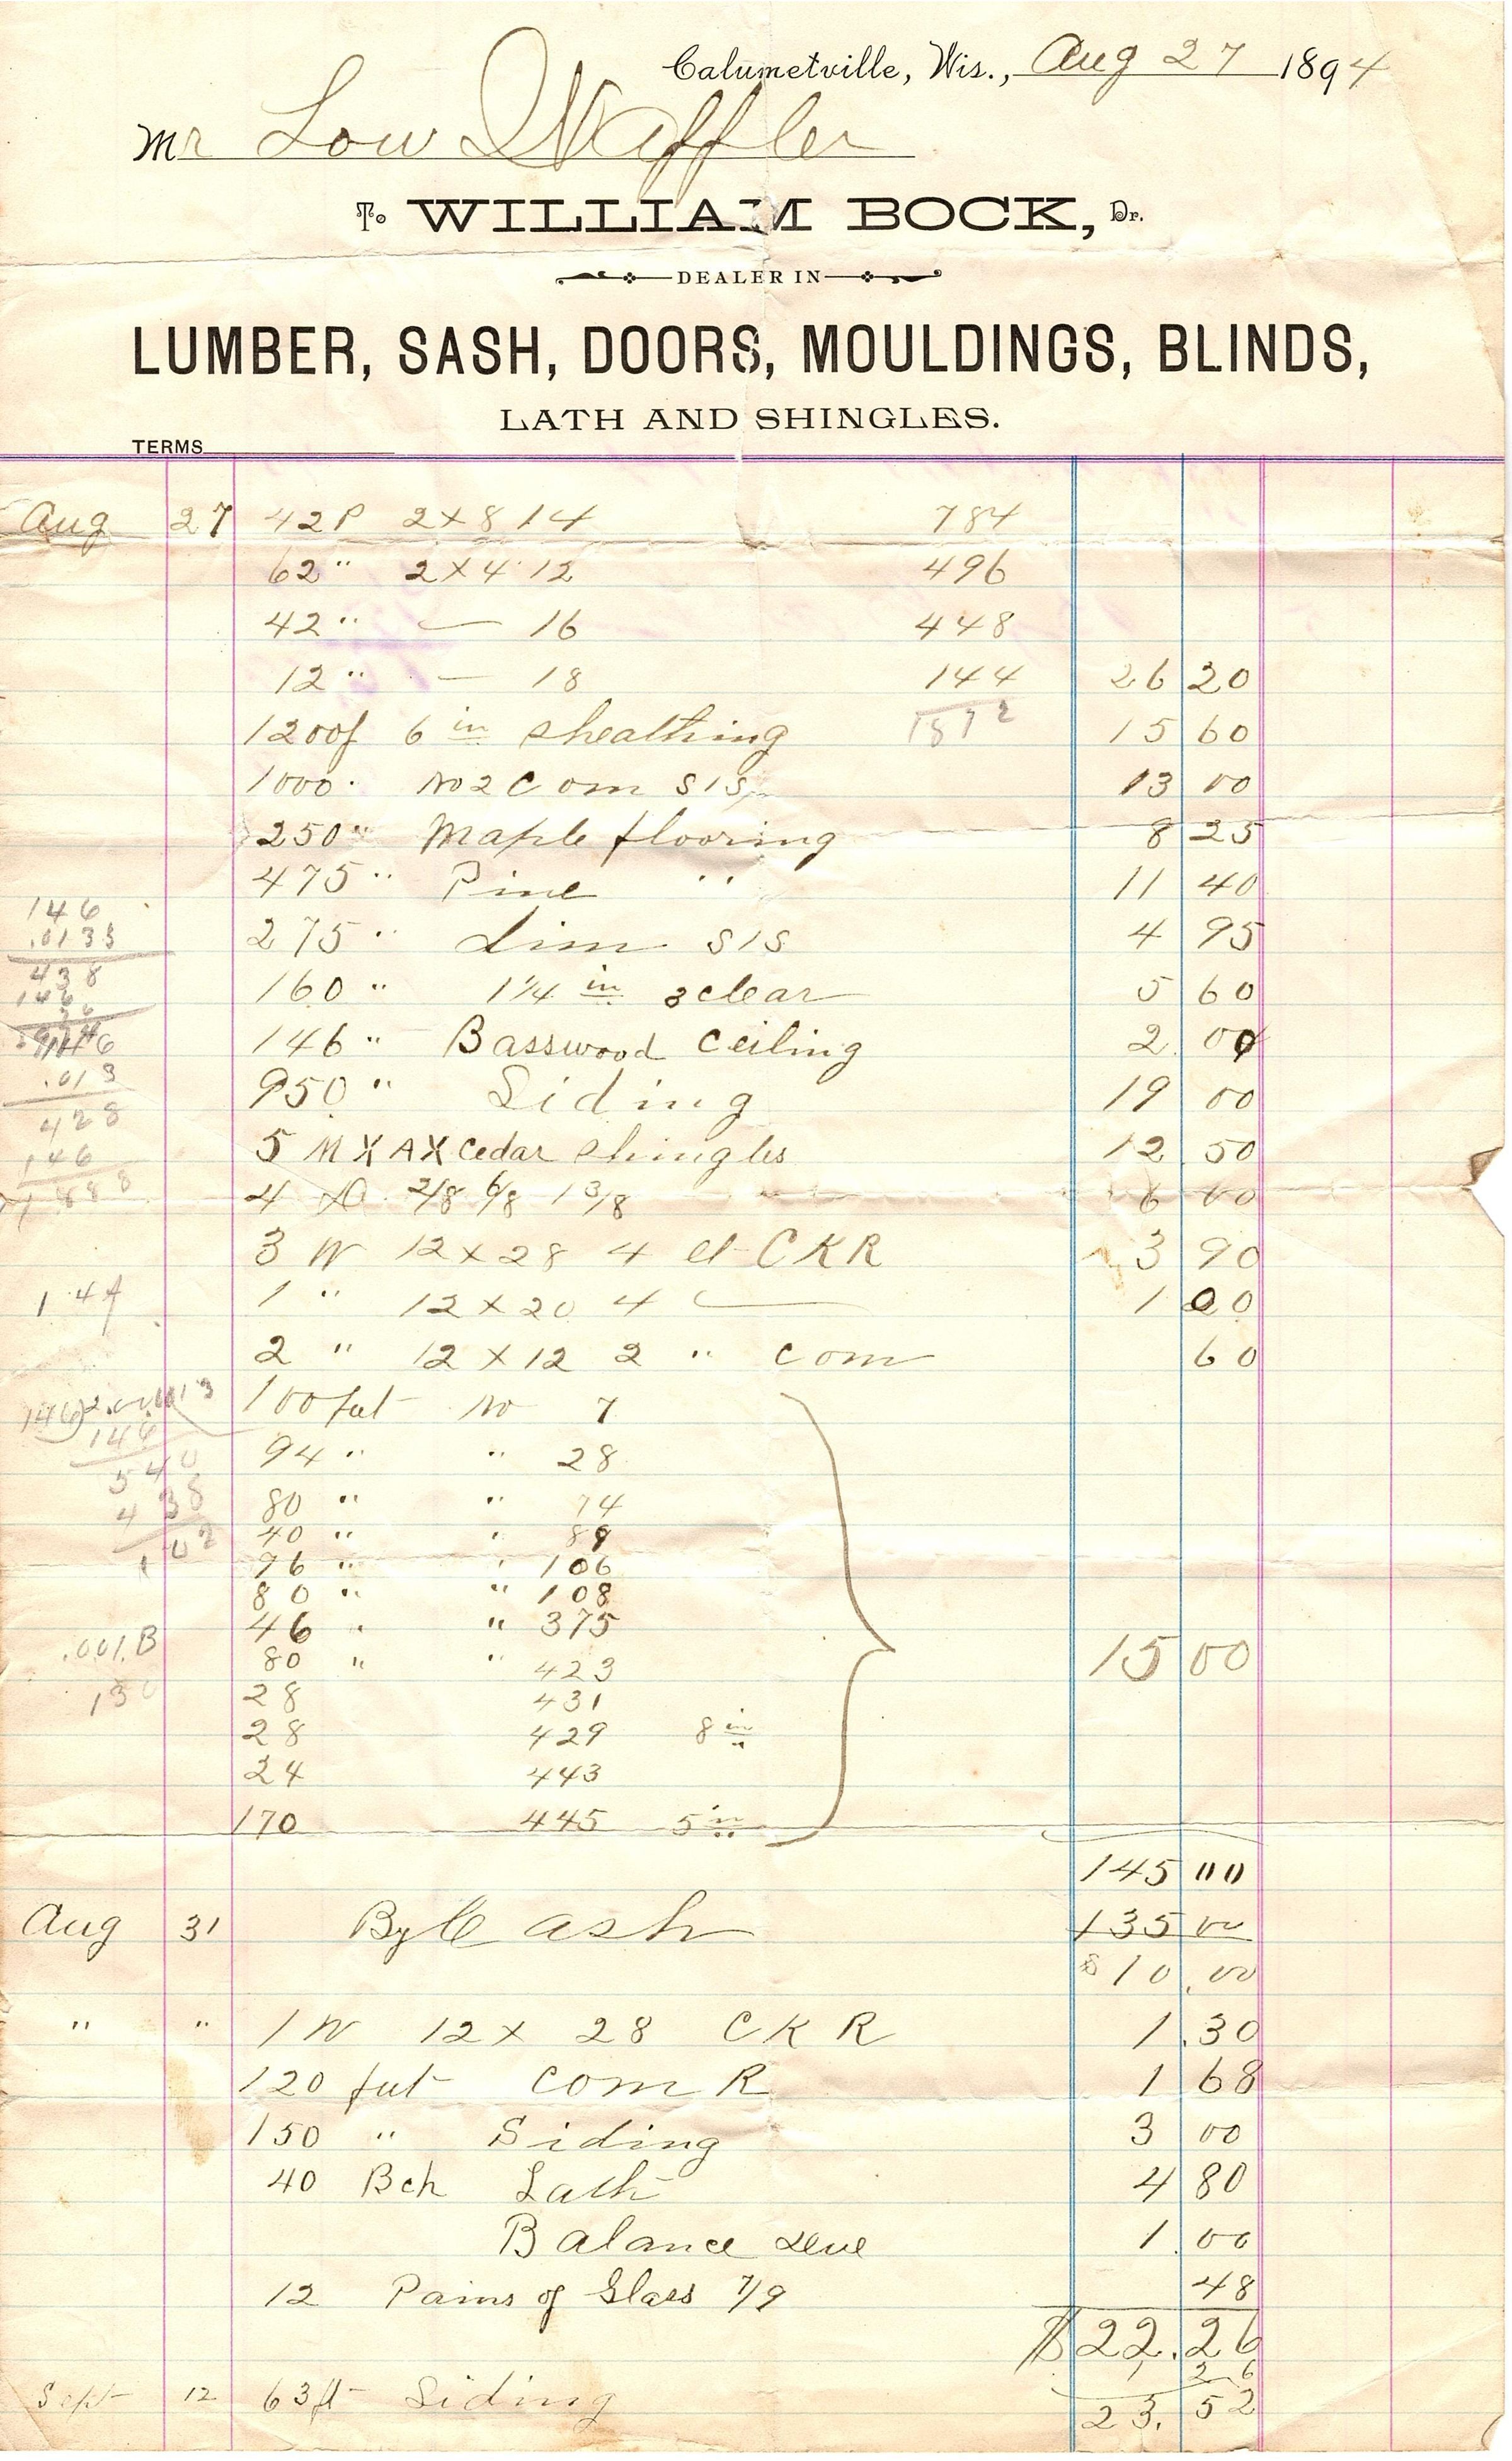 Calumetville, Wis., Aug 27 1894
Mr Low
To WILLIAM BOCK, Dr.
DEALER IN
LUMBER, SASH, DOORS, MOULDINGS, BLINDS,
LATH AND SHINGLES.
TERMS
Aug 27 42 P 2x8 14 784
62 " 2x4 12 496
42 " — 16 448
12 " — 18 144 26 20
1200f 6 in sheathing 1872 15 60
1000 " No 2 Com S1S 13 00
250 " Maple flooring 8 25
475 " Pine " 11 40
146
275 " S1S 4 95
438
160 " 1 1/4 in 3 clear 5 60
146 " Basswood Ceiling 2 00
.013
950 " Siding 19 00
428
5 M XAX Cedar Shingles 12 50
146
4 D. 2/8 6/8 1 3/8 6 00
3 W 12x28 4 lt CKR 3 90
1 " 12x20 4 — 1 00
2 " 12x12 2 " Com 60
100 feet No 7
94 " " 28
80 " " 74
40 " " 89
96 " " 106
80 " " 108
46 " " 375
80 " " 423 15 00
28 431
28 429 8 in
24 443
170 445 5 in
145 00
Aug 31 By Cash 135 00
$10.00
" " 1 W 12x28 CKR 1.30
120 feet Com R 1 68
150 " Siding 3 00
40 Bch Lath 4 80
Balance due 1.00
12 Pains of Glass 7/9 48
$22.26
Sept 12 63 ft Siding 1 26
23.52